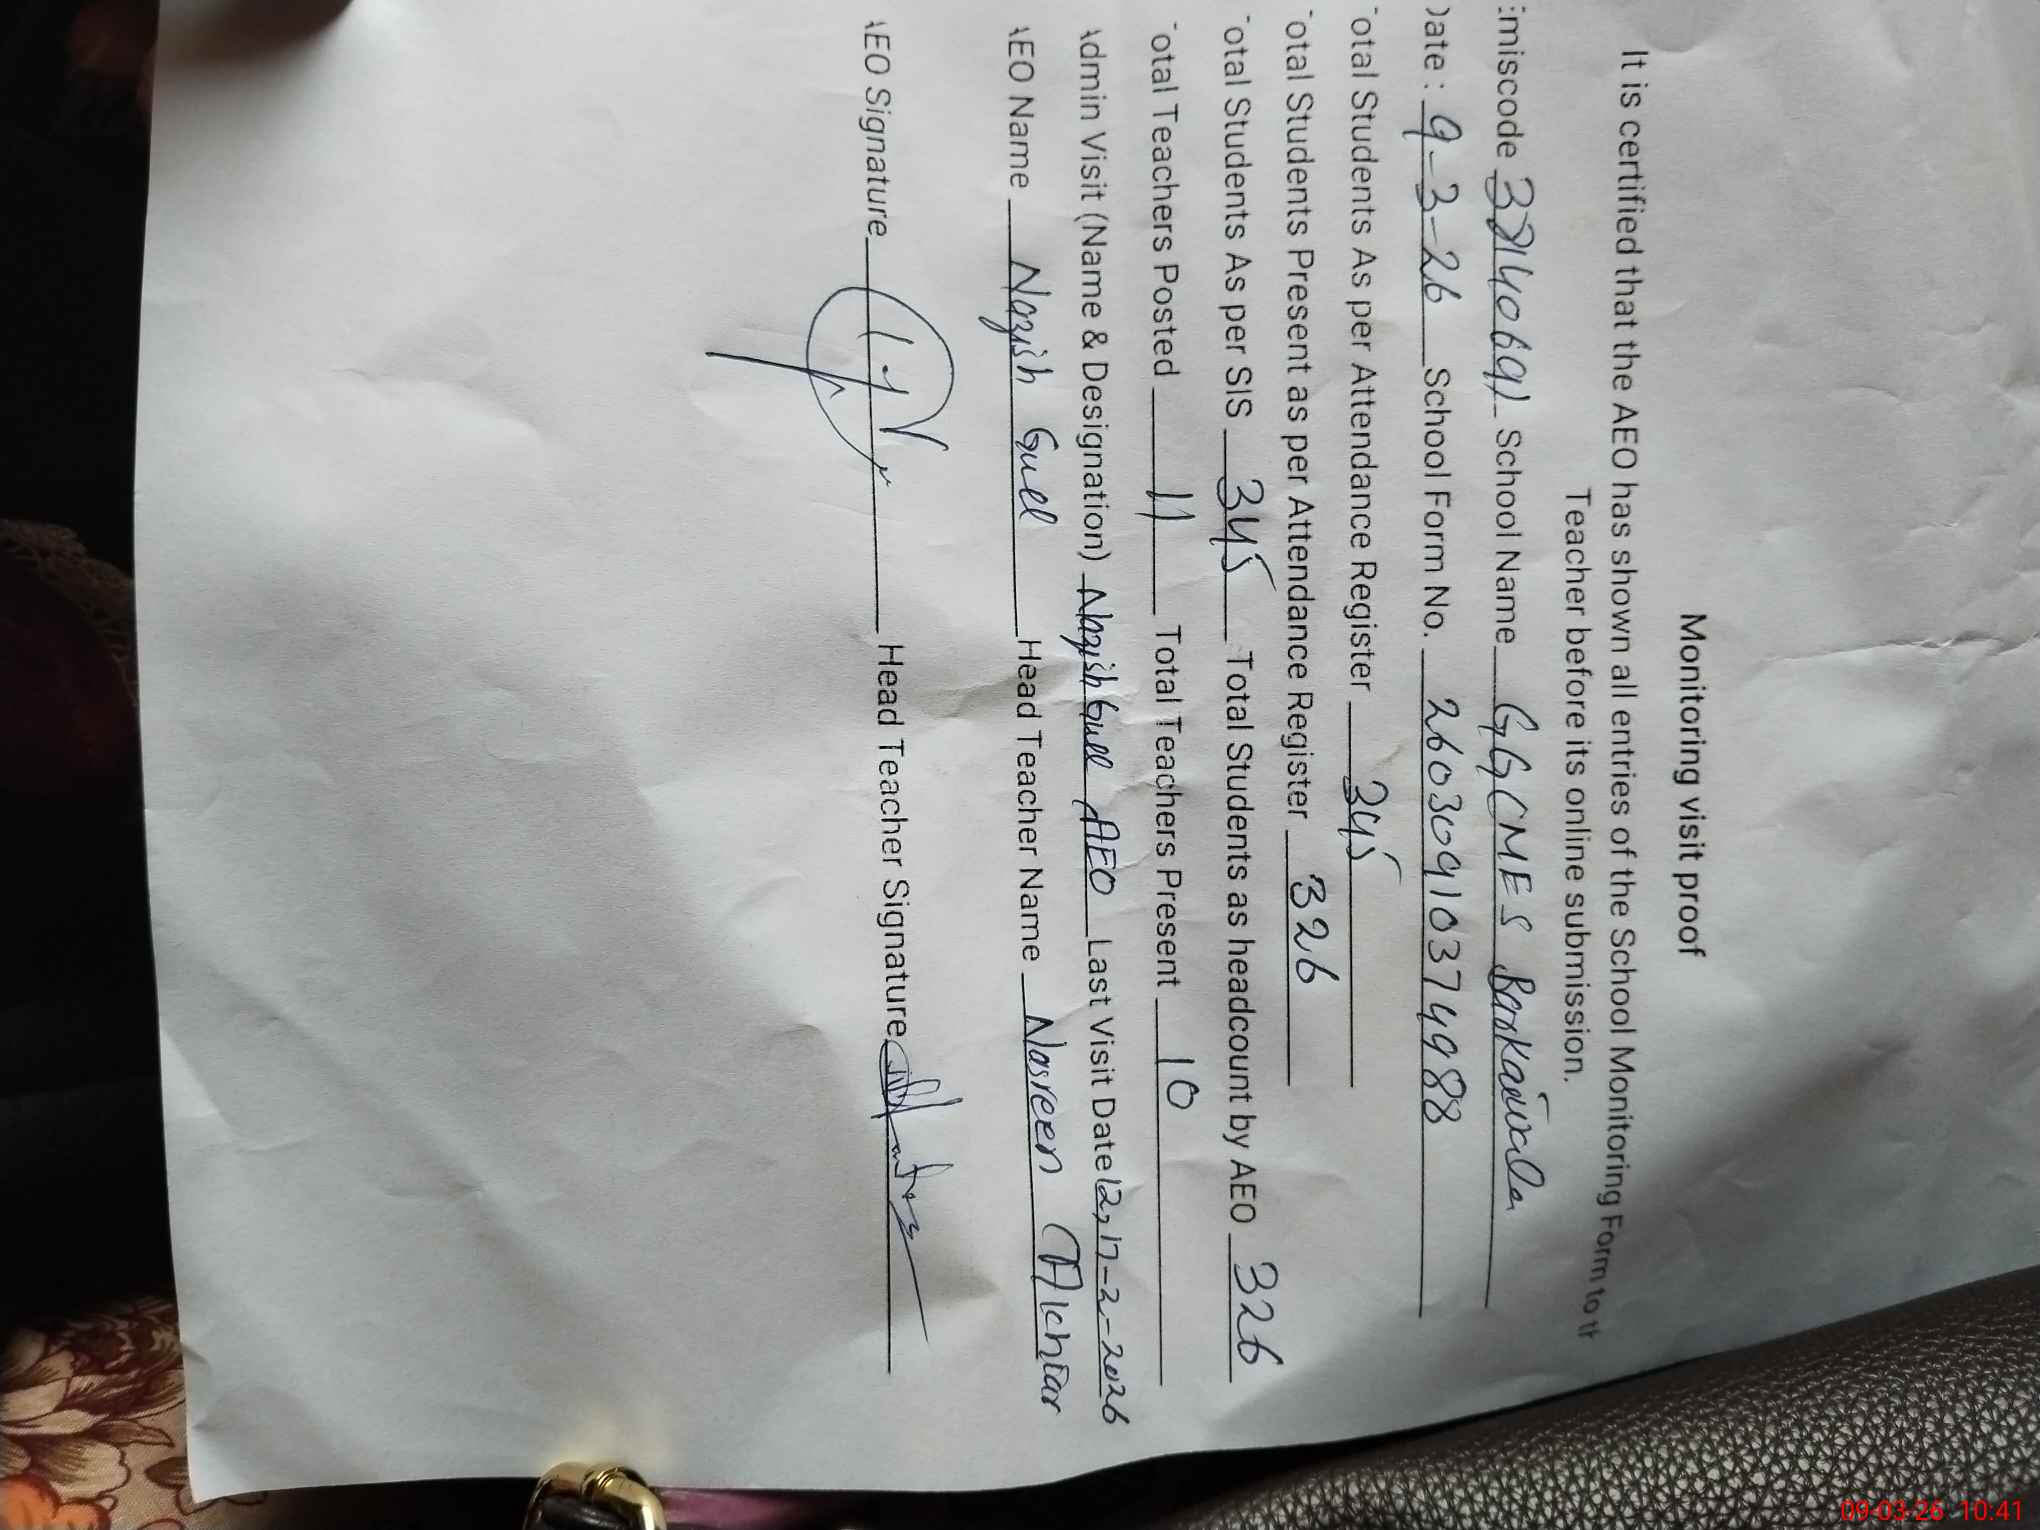 Monitoring visit proof
It is certified that the AEO has shown all entries of the School Monitoring Form to th
Teacher before its online submission.
Emiscode 33140691 School Name GGCMES
Date : 9-3-26 School Form No. 26030910374988
Total Students As per Attendance Register 345
Total Students Present as per Attendance Register 326
Total Students As per SIS 345 Total Students as headcount by AEO 326
Total Teachers Posted 11 Total Teachers Present 10
Admin Visit (Name & Designation) Nazish Gull AEO Last Visit Date 12, 17-2-2026
AEO Name Nazish Gull Head Teacher Name Nasreen Akhtar
AEO Signature Head Teacher Signature
09-03-26 10:41